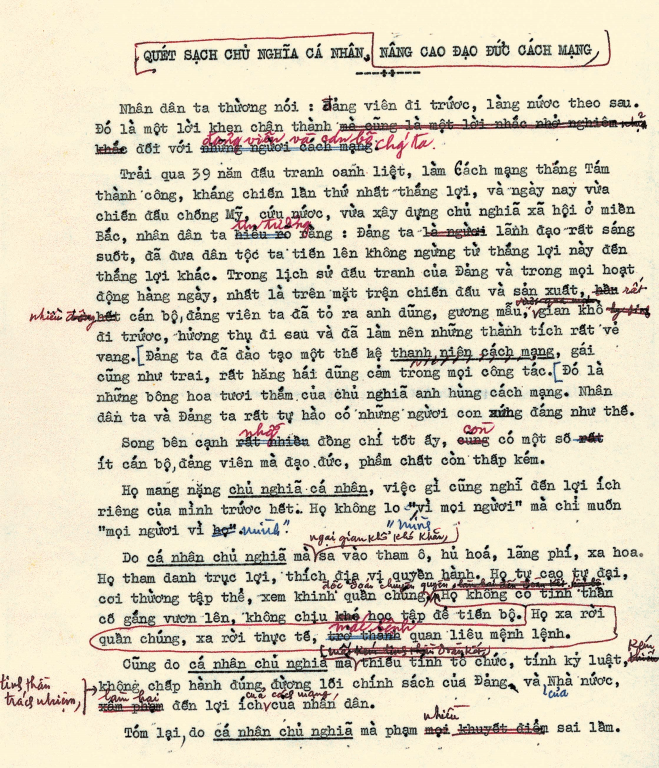 QUÉT SẠCH CHỦ NGHĨA CÁ NHÂN, NÂNG CAO ĐẠO ĐỨC CÁCH MẠNG
Nhân dân ta thường nói : đảng viên đi trước, làng nước theo sau.
Đó là một lời khen chân thành mà cũng là một lời nhắc nhở nghiêm
đảng viên và cán bộ chúng ta.
khắc đối với những người cách mạng.
Trải qua 39 năm đấu tranh oanh liệt, làm Cách mạng thắng Tám
thành công, kháng chiến lần thứ nhất thắng lợi, và ngày nay vừa
chiến đấu chống Mỹ, cứu nước, vừa xây dựng chủ nghĩa xã hội ở miền
tin tưởng
Bắc, nhân dân ta hiểu rõ rằng : Đảng ta là người lãnh đạo rất sáng
suốt, đã đưa dân tộc ta tiến lên không ngừng từ thắng lợi này đến
thắng lợi khác. Trong lịch sử đấu tranh của Đảng và trong mọi hoạt
động hàng ngày, nhất là trên mặt trận chiến đấu và sản xuất, rất
nhiều cán bộ, đảng viên ta đã tỏ ra anh dũng, gương mẫu, gian khổ
đi trước, hưởng thụ đi sau và đã làm nên những thành tích rất vẻ
vang. [Đảng ta đã đào tạo một thế hệ thanh niên cách mạng, gái
cũng như trai, rất hăng hái dũng cảm trong mọi công tác. [Đó là
những bông hoa tươi thắm của chủ nghĩa anh hùng cách mạng. Nhân
dân ta và Đảng ta rất tự hào có những người con xứng đáng như thế.
còn
Song bên cạnh rất nhiều đồng chí tốt ấy, cũng có một số rất
ít cán bộ, đảng viên mà đạo đức, phẩm chất còn thấp kém.
Họ mang nặng chủ nghĩa cá nhân, việc gì cũng nghĩ đến lợi ích
riêng của mình trước hết. Họ không lo "vì mọi người" mà chỉ muốn
"mình
"mọi người vì họ" mình."
ngại gian khổ khó khăn,
Do cá nhân chủ nghĩa mà sa vào tham ô, hủ hoá, lãng phí, xa hoa.
Họ tham danh trục lợi, thích địa vị quyền hành. Họ tự cao tự đại,
độc đoán chuyên quyền
coi thường tập thể, xem khinh quần chúng, Họ không có tinh thần
cố gắng vươn lên, không chịu khó học tập để tiến bộ. Họ xa rời
mắc bệnh
quần chúng, xa rời thực tế, trở thành quan liêu mệnh lệnh.
Cũng do cá nhân chủ nghĩa mà thiếu tính tổ chức, tính kỷ luật, kém
tinh thần trách nhiệm, không chấp hành đúng đường lối chính sách của Đảng và Nhà nước,
của
làm hại
của cách mạng,
xâm phạm đến lợi ích của nhân dân.
nhiều
Tóm lại, do cá nhân chủ nghĩa mà phạm mọi khuyết điểm sai lầm.